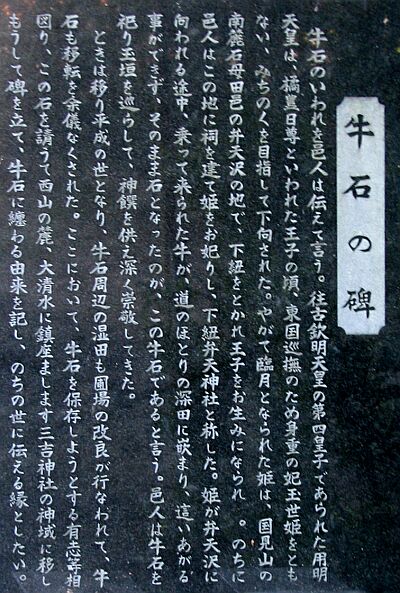 牛石の碑
牛石のいわれを邑人は伝えて言う。往古欽明天皇の第四皇子であられた用明
天皇は、橘豊日尊といわれた王子の頃、東国巡撫のため身重の妃玉世姫をとも
ない、みちのくを目指して下向された。やがて臨月となられた姫は、国見山の
南麓石母田邑の井天沢の地で、下紐をとかれ王子をお生みになられ 。のちに
邑人はこの地に祠を建て姫をお妃りし、下紐弁天神社と称した。姫が弁天沢に
向われる途中、乗って来られた牛が、道のほとりの深田に嵌まり、這いあがる
事ができず、そのまま石となったのが、この牛石であると言う。邑人は牛石を
祀り玉垣を巡らして、神饌を供え深く崇敬してきた。
ときは移り平成の世となり、牛石周辺の湿田も圃場の改良が行なわれて、牛
石も移転を余儀なくされた。ここにおいて、牛石を保存しようとする有志等相
図り、この石を請うて西山の麓、大清水に鎮座まします三吉神社の神域に移し
もうして碑を立て、牛石に纏わる由来を記し、のちの世に伝える縁としたい。